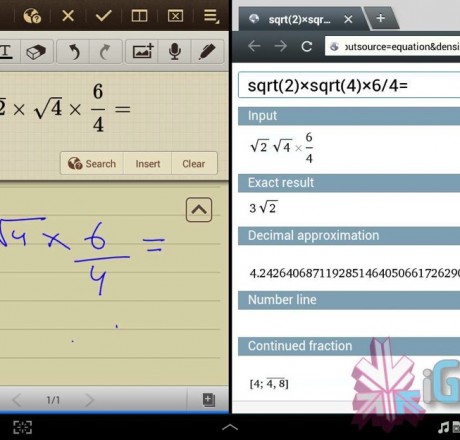 2 × √4 × 6/4 =
Search Insert Clear
√4 × 6/4 =
1/1
sqrt(2)×sqr...
outsource=equation&densi
sqrt(2)×sqrt(4)×6/4=
Input
√2 √4 × 6/4
Exact result
3√2
Decimal approximation
4.2426406871192851464050661726290
Number line
Continued fraction
[4; 4, 8]
iG